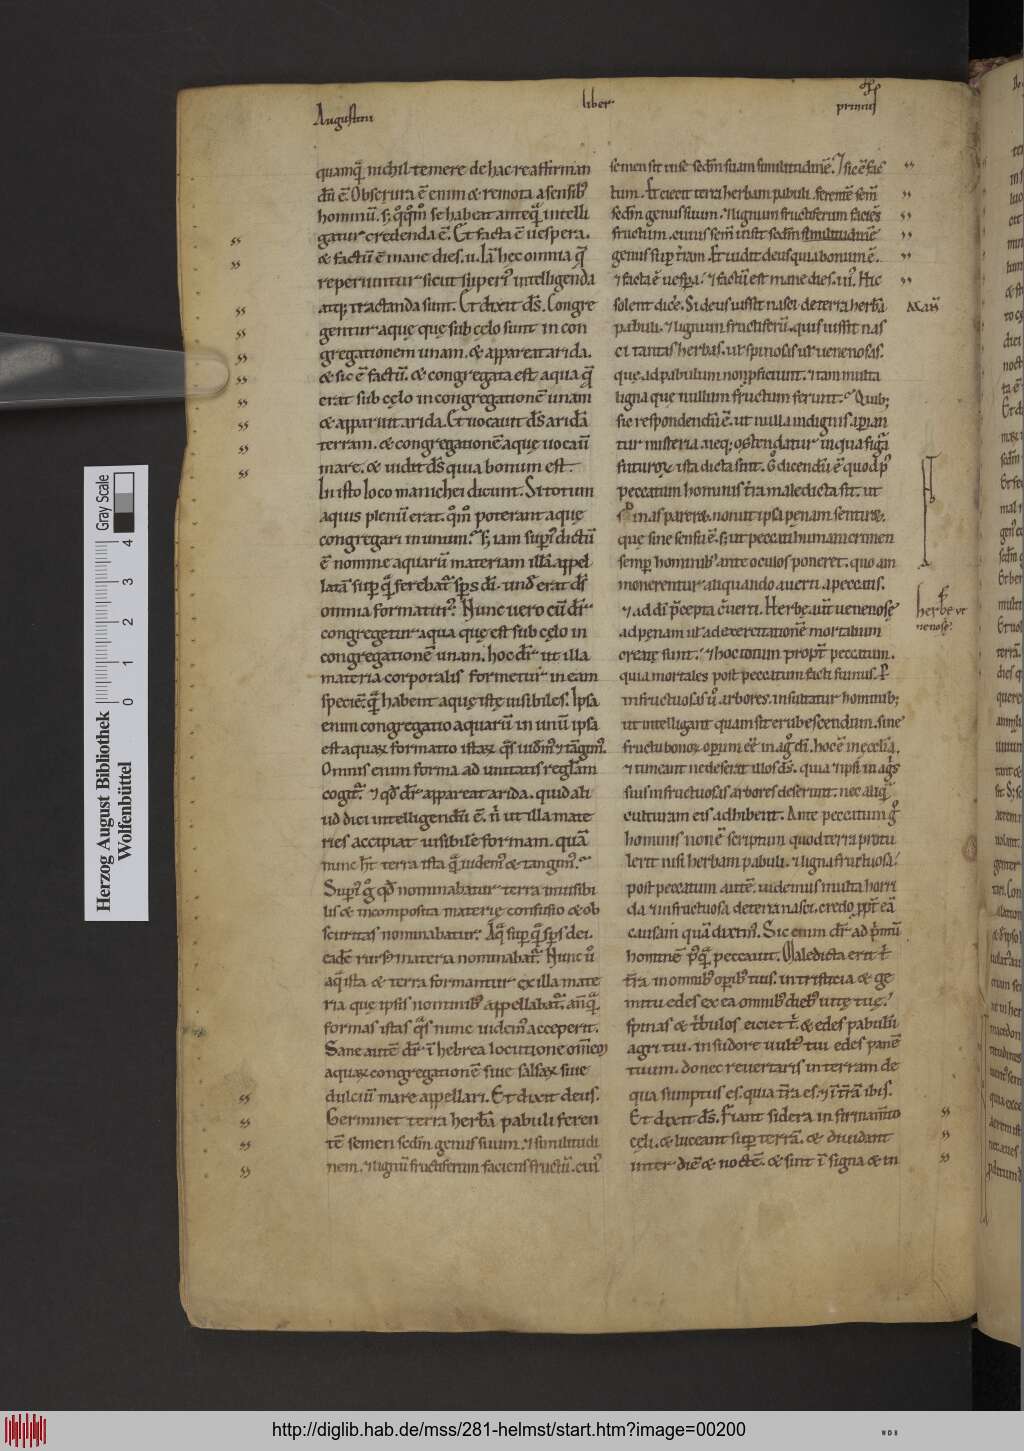 Augustini
liber
primus
quamq̄ nichil temere de hac re affirman
dū ē. Obscura ē enim & remota a sensib;
hominū. s; q̊q̊m̊ se habeat anteq̄ intelli
gatur credenda ē. Et facta ē uespera.
& factū ē mane dies .ii. Iā hec omnia q̄
reperiuntur sicut superi᾿ intelligenda
atq; tractanda sunt. Et dixit dš. Congre
gentur aquę quę sub cęlo sunt in con
gregationem unam. & appareat arida.
& sic ē factū. & congregata est aqua q̄
erat sub cęlo in congregationē unam
& apparuit arida. Et uocauit dš aridā
terram. & congregationē aquę uocauī
mare. & uidit dš quia bonum est.
In isto loco manichei dicunt. Si totum
aquis plenū erat. q̊m̊ poterant aquę
congregari in unum? S; iam supi᾿ dictū
ē nomine aquarū materiam illā appel
latā sup q̄ ferebat᾿ sps dī. unde erat dš
omnia formatur᾿. Nunc uero cū dr̄
congregetur aqua quę est sub cęlo in
congregationē unam. hoc dr̄ ut illa
materia corporalis formetur in eam
speciē. q̄ habent aquę istę uisibiles. Ipsa
enim congregatio aquarū in unū ipsa
est aquaꝝ formatio istaꝝ q̄s uidem᾿ ⁊ tāgim᾿.
Omnis enim forma ad unitatis reglam
cogit᾿. ⁊ qd dr̄ appareat arida. quid ali
ud dici intelligendū ē. n̄ ut illa mate
ries accipiat uisibile formam. quā
nunc ht̄ terra ista q̄ uidem᾿ & tangim᾿.
Supi᾿ g̊ qd̄ nominabatur terra inuisibi
lis & incomposita materię confusio & ob
scuritas nominabatur. Aq̄ sup q̄ sps dei.
eadē rursꝰ materia nominabat᾿. Nunc u̇
aq̄ ista & terra formantur ex illa mate
ria quę ipsis nominib; appellabat᾿. anq̄
formas istas q̄s nunc uidem᾿ acceperit.
Sane autē dr̄ ī hebrea locutione omēm
aquaꝝ congregationē siue salsaꝝ siue
dulciū mare appellari. Et dixit deus.
Germinet terra herbā pabuli feren
tē semen scdm genus suum. ⁊ similitudi
nem. ⁊ lignū fructiferum faciens fructū. cui᾿
semen sit in se scdm suam similitudinē. ⁊ sic ē fac
tum. Et eiecit terra herbam pabuli. ferentē sem̄
scdm genus suum. ⁊ lignum fructiferum faciēs
fructum. cuius sem̄ insit scdm similitudinē
genus sup tr̄am. Et uidit deus quia bonum ē.
⁊ facta ē uespa. ⁊ factū est mane dies .iii. Hic
solent dice. Si deus iussit nasci de terra herbā
pabuli. ⁊ lignum fructiferū. quis iussit nas
ci tantas herbas. ut spinosas ut uenenosas.
quę ad pabulum non pficiunt. ⁊ tam multa
ligna quę nullum fructum ferunt? Quib;
sic respondendū ē. ut nulla indignis apian
tur misteria. neq; ostendatur in qua figā
futuroꝝ ista dicta sint. G̊ dicendū ē quod p᾿
peccatum hominis tr̄a maledicta sit. ut
spinas pareret. non ut ipsa pęnam sentiret.
quę sine sensu ē. s; ut peccati humani crimen
semp hominib᾿ ante oculos poneret. quo am
monerentur aliquando auerti a peccatis.
⁊ ad di p̄cepta c̄uerti. Herbę aut̄ uenenosę
ad pęnam ut ad exercitationē mortalium
creatę sunt. ⁊ hoc totum propt̄ peccatum.
quia mortales post peccatum facti sumus. P
infructuosas u̇. arbores. insultatur hominib;
ut intelligant quam sit erubescendum. sine
fructu bonoꝝ opum eē in ag̊ dī. hoc ē in ęcclīa.
⁊ timeant ne deserat illos dš. quia ⁊ ipsi in agis
suis infructuosas arbores deserunt. nec aliq̄
culturam eis adhibent. Ante peccatum g̊
hominis non ē scriptum quod terra protu
lerit nisi herbam pabuli. ⁊ ligna fructuosa.
post peccatum autē. uidemus multa horri
da ⁊ infructuosa de terra nasci. credo ppt̄ eā
causam quā dixim᾿. Sic enim dr̄ ad p̄mū
hominē p᾿q̄ peccauit. Maledicta erit t̄
tr̄a in omnib᾿ opib᾿ tuis. in tristicia & ge
mitu edes ex ea omnib᾿ dieb᾿ uitę tuę.
spinas & t̄bulos eiciet t̄. & edes pabulū
agri tui. in sudore uult᾿ tui edes panē
tuum. donec reuertaris in terram de
qua sumptus es. quia tr̄a es. ⁊ ī tr̄ā ibis.
Et dixit dš. Fiant sidera in firmam̄to
cęli. & luceant sup terrā. & diuidant
inter diē & noctē. & sint ī signa & in
herbe ue
nenosę
Herzog August Bibliothek
Wolfenbüttel
Gray Scale
0 1 2 3 4
http://diglib.hab.de/mss/281-helmst/start.htm?image=00200